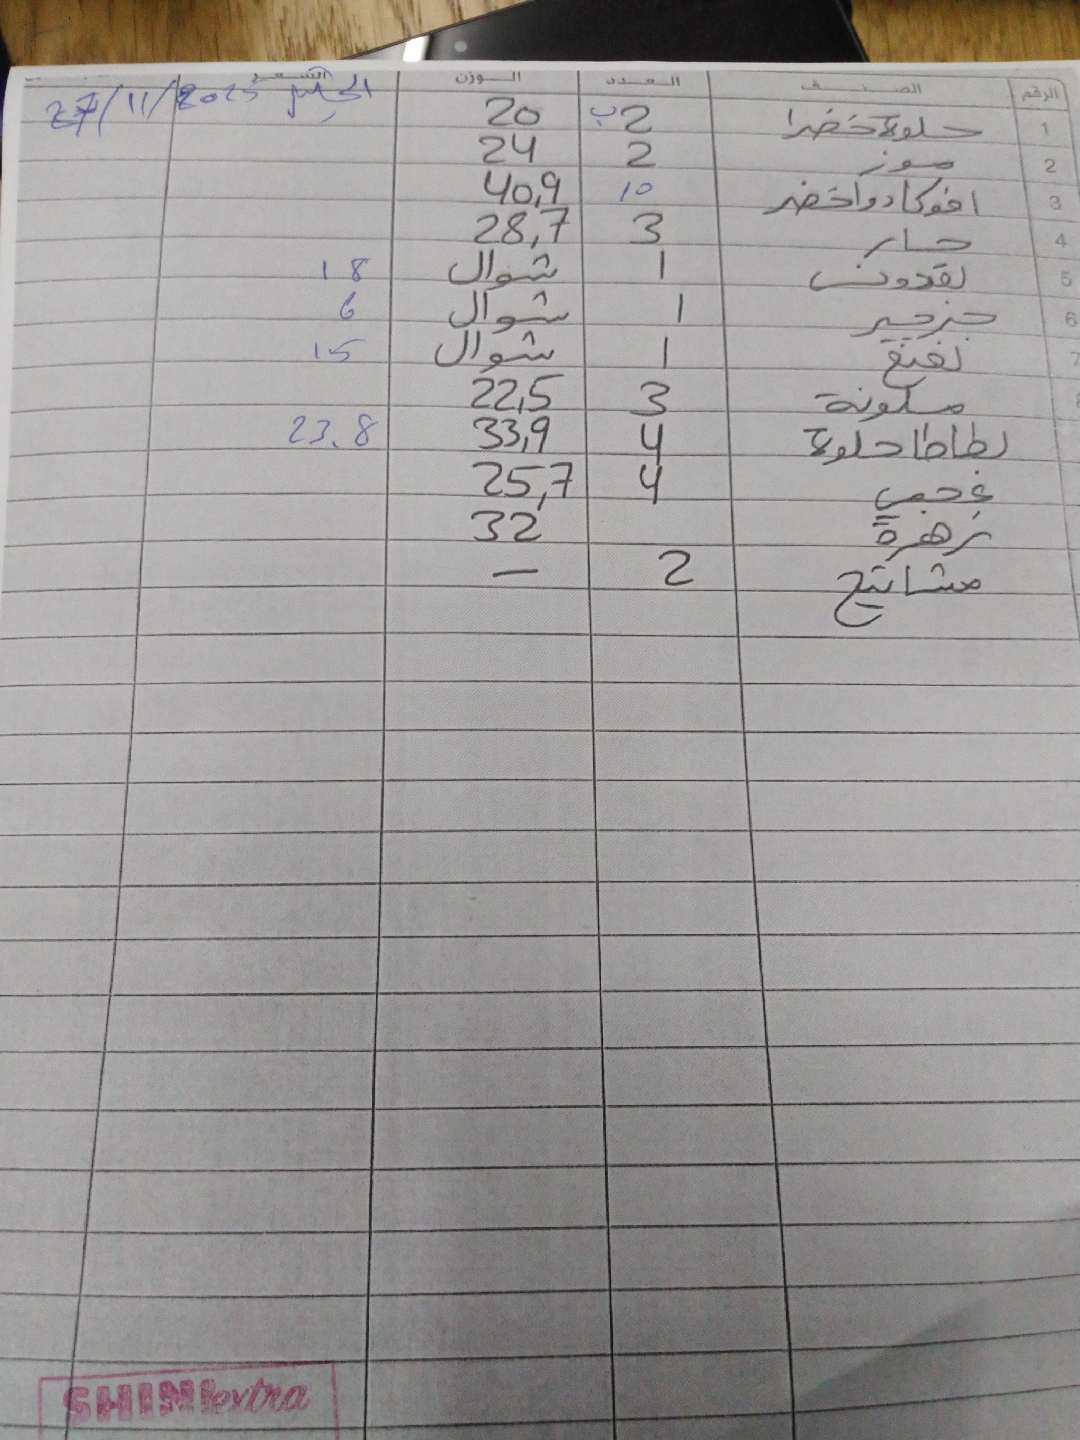 الرقم الصنف العدد الوزن السعر
الخميس 27/11/2025
1 حلوة خضرا 2 ب 20
2 موز 2 24
3 افوكادو اخضر 10 40,9
4 خيار 3 28,7
5 بقدونس 1 شوال 18
6 جرجير 1 شوال 6
7 نعنع 1 شوال 15
8 ملكونة 3 22,5
بطاطا حلوة 4 33,9 23.8
4 25,7
زهرة 32
مشاتيح 2 —
SHINIextra